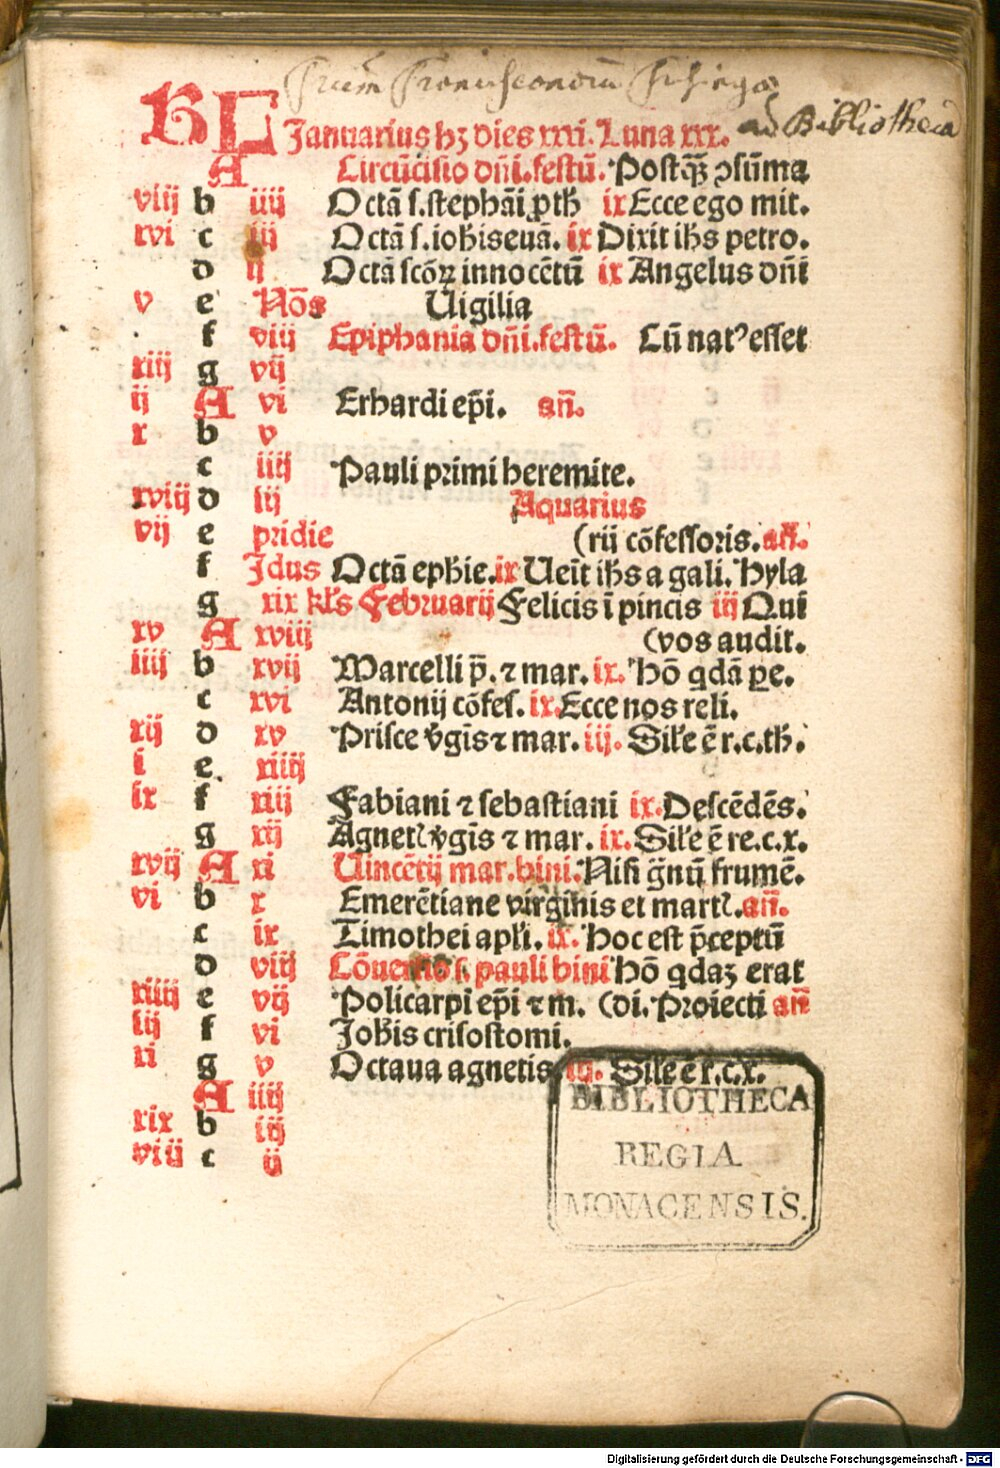 ad Bibliotheca
KL Januarius hꝫ dies xxxi. Luna xxx.
A Circūcisio dñi. festū. Postqꝫ ↄsūma
viij b iiij Octā s. stephāi ꝓth ix Ecce ego mit.
xvi c iij Octā s. iohis euā. ix Dixit ihs petro.
d ij Octā scōꝝ innocētū ix Angelus dñi
v e Nōs Uigilia
f viij Epiphania dñi. festū. Cū natꝰ esset
xiij g vij
ij A vi Erhardi ep̄i. añ.
x b v
c iiij Pauli primi heremite.
xviij d iij Aquarius
vij e pridie (rij cōfessoris. añ.
f Idus Octā ephie. ix Ueīt ihs a gali. Hyla
g xix kl's Februarij Felicis ī pincis iij Qui
xv A xviij (vos audit.
iiij b xvij Marcelli p̄. ⁊ mar. ix. Hō qdā ꝑe.
c xvi Antonij cōfes. ix. Ecce nos reli.
xij d xv Prisce v̄gīs ⁊ mar. iij. Sil'e ē r. c. th.
i e xiiij
ix f xiij Fabiani ⁊ sebastiani ix. Descēdēs.
g xij Agnetꝭ v̄gīs ⁊ mar. ix. Sil'e ē re. c. x.
xvij A xi Uincētij mar. bini. Nisi g̈nū frumē.
vi b x Emerētiane virginis et martꝭ. añ.
c ix Timothei apl'i. ix. Hoc est p̄ceptū
d viij Cōuersio s. pauli bini Hō qdaꝫ erat
xiiij e vij Policarpi ep̄i ⁊ m. (di. Proiecti añ
iij f vi Johis crisostomi.
xi g v Octaua agnetis iij. Sil'e ē r. c. x.
A iiij
xix b iij
viij c ij
BIBLIOTHECA
REGIA
MONACENSIS.
Digitalisierung gefördert durch die Deutsche Forschungsgemeinschaft - DFG